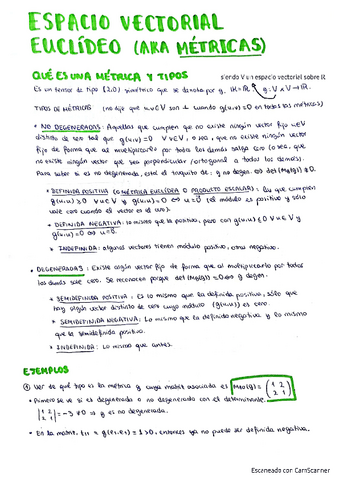 ESPACIO VECTORIAL
EUCLÍDEO (AKA MÉTRICAS)
QUÉ ES UNA MÉTRICA Y TIPOS
siendo V un espacio vectorial sobre R
Es un tensor de tipo (2,0) simétrico que se denota por g. K=R. g: V x V → R.
TIPOS DE MÉTRICAS (no dije que u,v∈V son ⊥ cuando g(u,v)=0 en todas las métricas)
• NO DEGENERADAS: Aquellas que cumplen que no existe ningún vector fijo u∈V
distinto de cero tal que g(u,v)=0 ∀v∈V, o sea, que no existe ningún vector
fijo de forma que al multiplicarlo por todos los demás salga cero (o sea, que
no existe ningún vector que sea perpendicular/ortogonal a todos los demás).
Para saber si es no degenerada, está el truquito de: g no degen. ⇔ det(MB(g)) ≠ 0.
* DEFINIDA POSITIVA (o MÉTRICA EUCLÍDEA o PRODUCTO ESCALAR): La que cumplen
g(u,u) ≥ 0 ∀u∈V y g(u,u)=0 ⇔ u=0 (el módulo es positivo y sólo
vale cero cuando el vector es el cero).
* DEFINIDA NEGATIVA: lo mismo que la positiva, pero con g(u,u) ≤ 0 ∀u∈V y
g(u,u)=0 ⇔ u=0.
* INDEFINIDA: algunos vectores tienen módulo positivo, otros negativo.
• DEGENERADAS: Existe algún vector fijo de forma que al multiplicarlo por todos
los demás sale cero. Se reconocen porque det(MB(g))=0 ⇔ g degen.
* SEMIDEFINIDA POSITIVA: Es lo mismo que la definida positiva, sólo que
hay algún vector distinto de cero cuyo módulo (g(u,u)) es cero
* SEMIDEFINIDA NEGATIVA: Lo mismo que la definida negativa y lo mismo
que la semidefinida positiva.
* INDEFINIDA: Lo mismo que antes.
EJEMPLOS
① Ver de qué tipo es la métrica g cuya matriz asociada es MB(g) = (1 2 2 1)
• Primero se ve si es degenerada o no degenerada con el determinante.
|1 2 2 1| = -3 ≠ 0 ⇒ g es no degenerada.
• En la matriz, t11 = g(e1,e1) = 1 > 0, entonces ya no puede ser definida negativa.
Escaneado con CamScanner